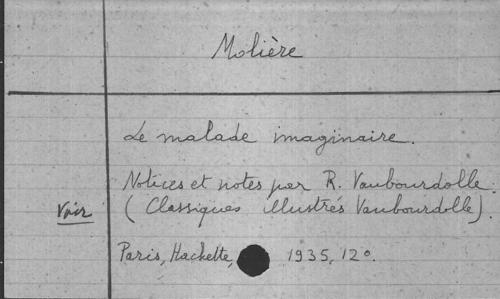 Molière
Le malade imaginaire.
Notices et notes par R. Vaubourdolle.
Voir (Classiques illustrés Vaubourdolle).
Paris, Hachette, 1935, 12º.